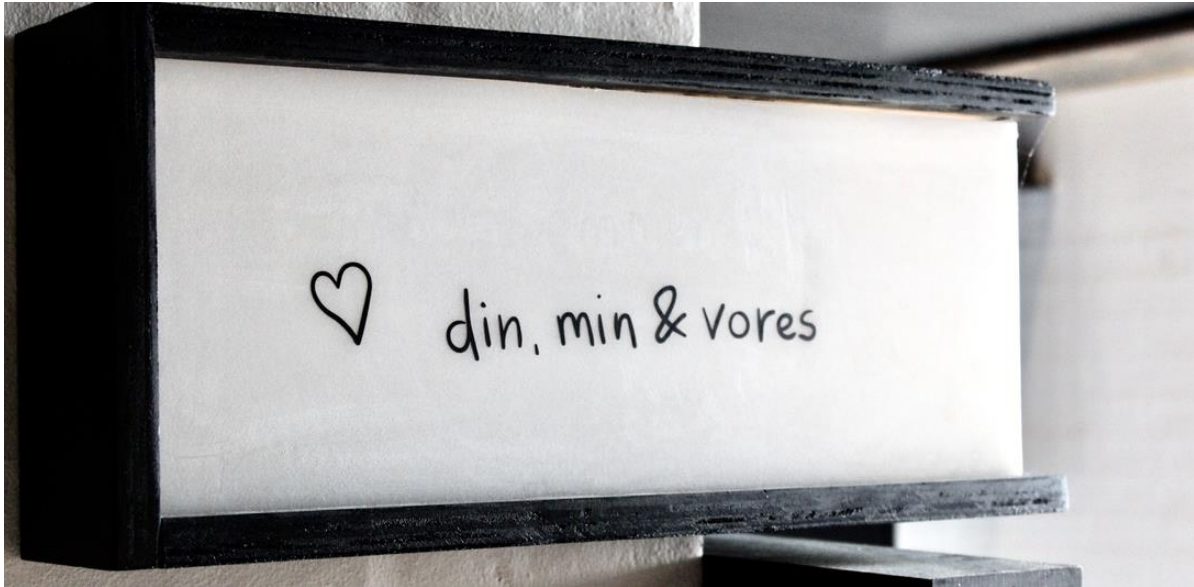 din, min & vores